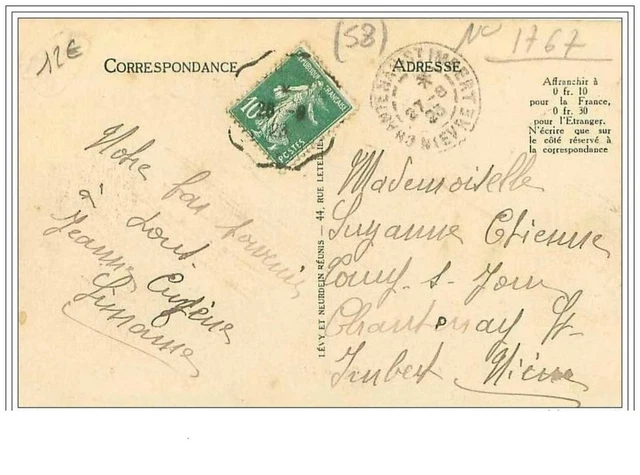 (58)
12€
N° 1767
CORRESPONDANCE
ADRESSE
RÉPUBLIQUE FRANÇAISE
10c
POSTES
CHANTENAY-ST IMBERT
NIÈVRE
Affranchir à
0 fr. 10
pour la France,
0 fr. 30
pour l'Etranger.
N'écrire que sur
le côté réservé à
la correspondance
Notre bon souvenir
à tous
Jeanne Eugène
Suzanne
LÉVY ET NEURDEIN RÉUNIS — 44, RUE LETELLIER
Mademoiselle
Suzanne Etienne
Chantenay St
Imbert Nièvre